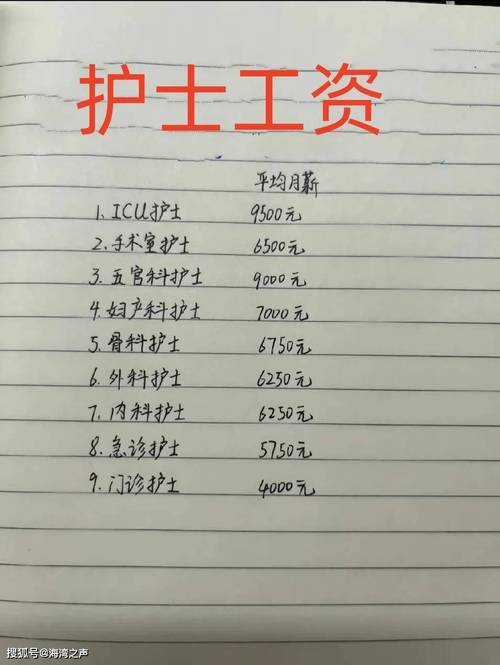 护士工资
平均月薪
1. ICU护士 9500元
2. 手术室护士 6500元
3. 五官科护士 9000元
4. 妇产科护士 7000元
5. 骨科护士 6750元
6. 外科护士 6250元
7. 内科护士 6250元
8. 急诊护士 5750元
9. 门诊护士 4000元
搜狐号@海湾之声